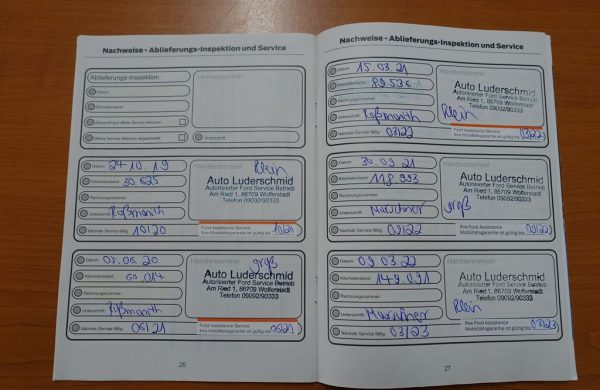 Nachweise - Ablieferungs-Inspektion und Service
Ablieferungs-Inspektion
Vertragspartner
Datum
Kilometerstand
Unterschrift
Datum 24.10.19
Kilometerstand 30.625
Rechnungsnummer
Unterschrift Roßmanith
Nächste Service fällig 10/20
Händlerstempel Klein
Auto Luderschmid
Autorisierter Ford Service Betrieb
Am Ried 1, 86709 Wolferstadt
Telefon 09092/90333
Ford Assistance
Ihre Mobilitätsgarantie ist gültig bis 10/20
Datum 05.06.20
Kilometerstand 60.014
Rechnungsnummer
Unterschrift Roßmanith
Nächste Service fällig 06/21
Händlerstempel groß
Auto Luderschmid
Autorisierter Ford Service Betrieb
Am Ried 1, 86709 Wolferstadt
Telefon 09092/90333
Ford Assistance Service
Ihre Mobilitätsgarantie ist gültig bis 06/21
26
Nachweise - Ablieferungs-Inspektion und Service
Datum 15.03.21
Kilometerstand 89.536
Rechnungsnummer
Unterschrift Roßmanith
Nächste Service fällig 03/22
Händlerstempel
Auto Luderschmid
Autorisierter Ford Service Betrieb
Am Ried 1, 86709 Wolferstadt
Telefon 09092/90333
Klein
Ford Assistance Service
Ihre Mobilitätsgarantie ist gültig bis 03/22
Datum 30.09.21
Kilometerstand 118.993
Rechnungsnummer
Unterschrift
Nächste Service fällig 09/22
Händlerstempel
Auto Luderschmid
Autorisierter Ford Service Betrieb
Am Ried 1, 86709 Wolferstadt
Telefon 09092/90333
groß
Ihre Ford Assistance
Mobilitätsgarantie ist gültig bis 09/22
Datum 09.03.22
Kilometerstand 149.091
Rechnungsnummer
Unterschrift
Nächste Service fällig 03/23
Händlerstempel
Auto Luderschmid
Autorisierter Ford Service Betrieb
Am Ried 1, 86709 Wolferstadt
Telefon 09092/90333
Klein
Ihre Ford Assistance
Mobilitätsgarantie ist gültig bis 03/23
27